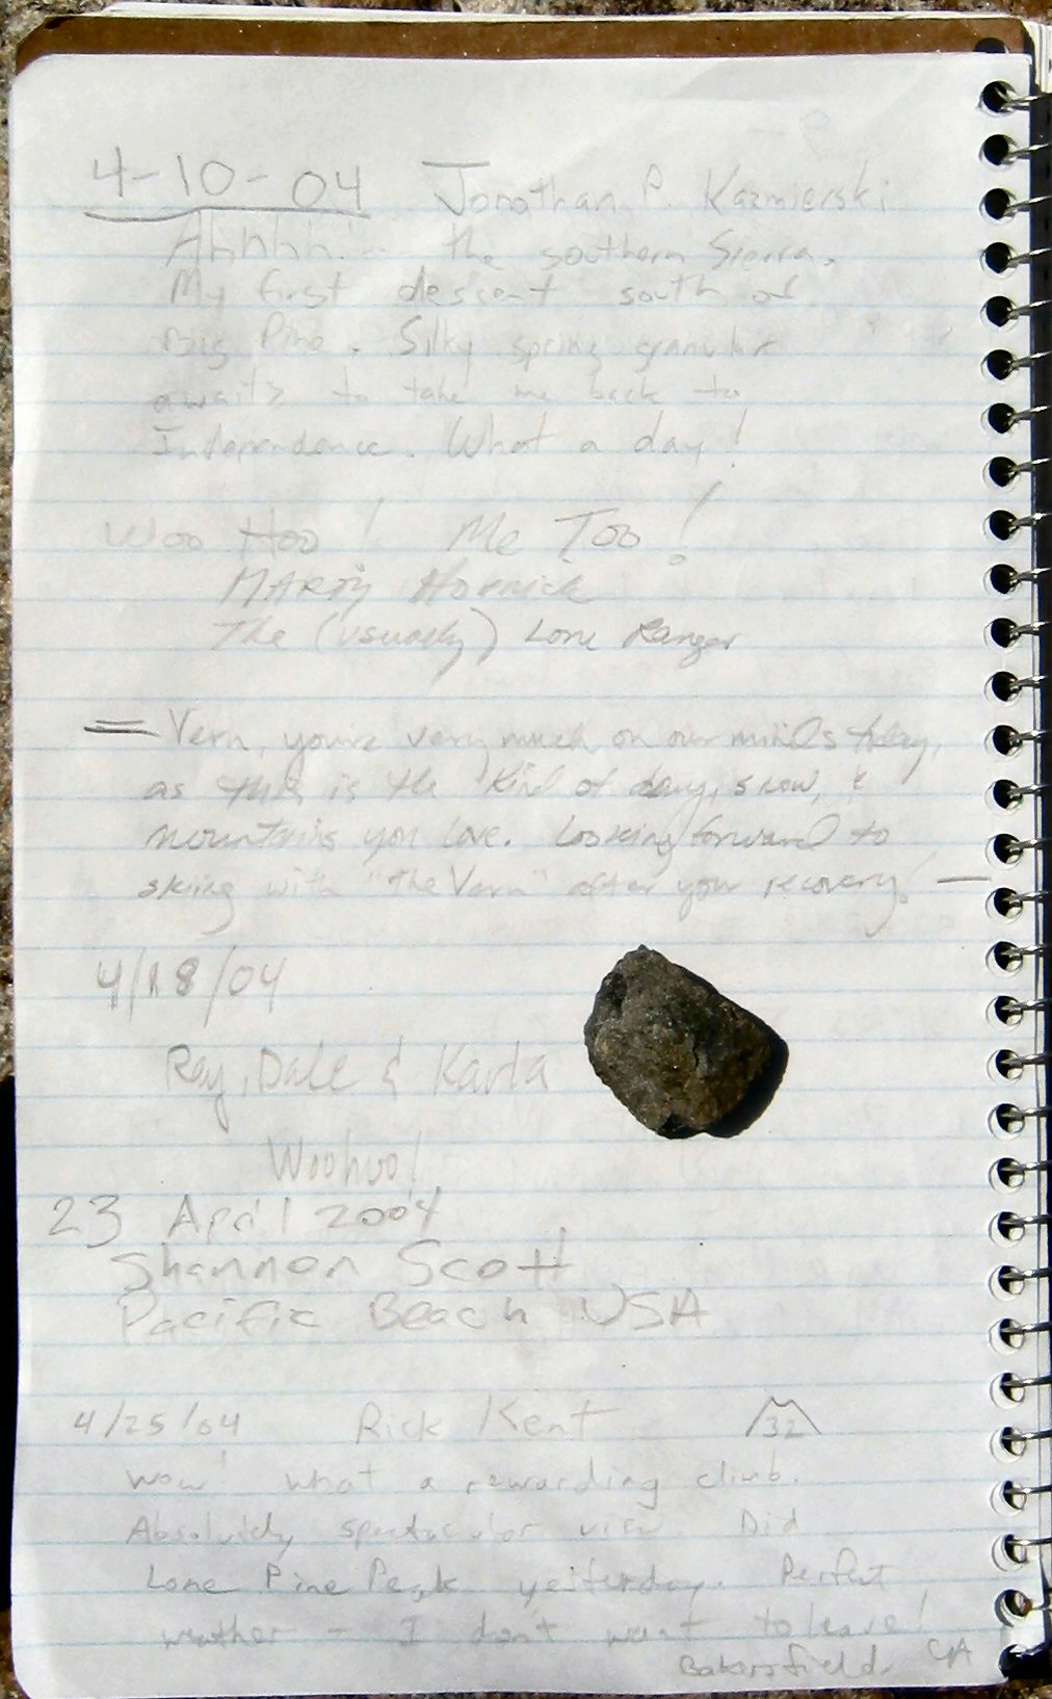 4-10-04 Jonathan P. Kazmierski
Ahhhh!-- the southern Sierra.
My first descent south of
Big Pine. Silky spring granular
awaits to take me back to
Independence. What a day!
Woo Hoo! Me Too!
MARTY Hornick
The (usually) Lone Ranger
= Vern, you're very much on our minds today,
as this is the kind of day, snow, &
mountains you love. Looking forward to
skiing with "The Vern" after your recovery! —
4/18/04
Ray, Dale & Karla
Woohoo!
23 April 2004
Shannon Scott
Pacific Beach USA
4/25/04 Rick Kent 32
Wow! What a rewarding climb.
Absolutely spectacular view. Did
Lone Pine Peak yesterday. Perfect
weather - I don't want to leave!
Bakersfield, CA